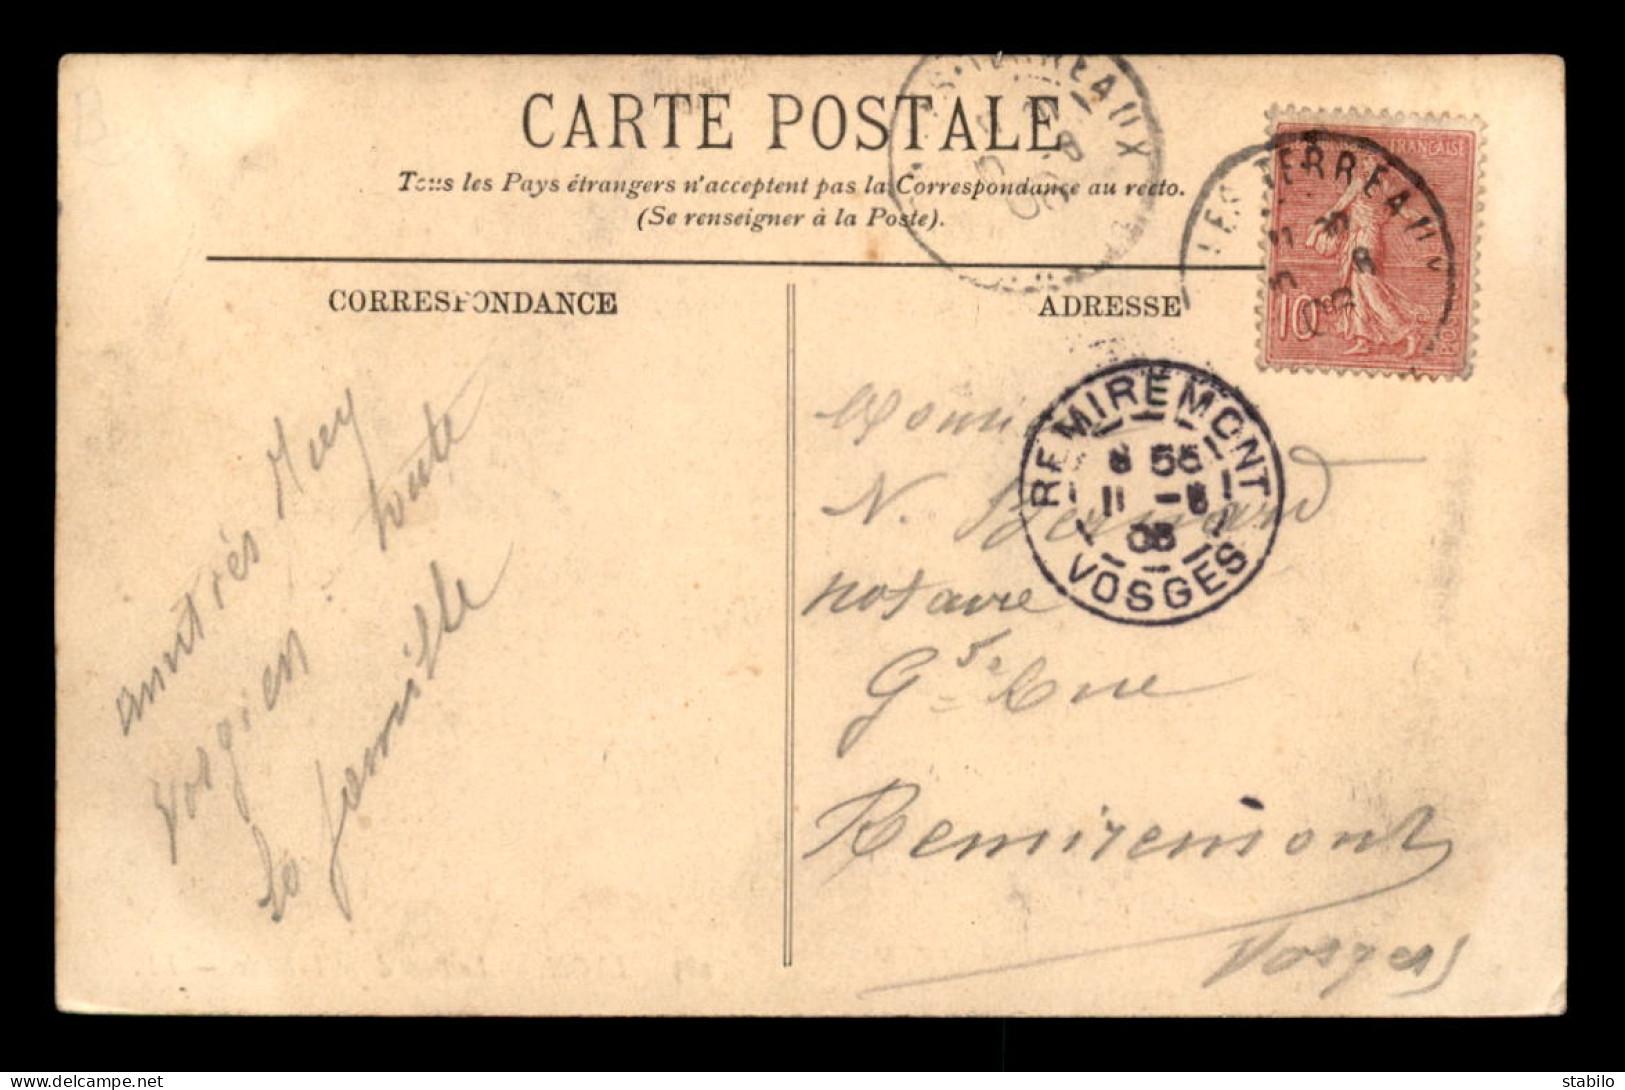 CARTE POSTALE
Tous les Pays étrangers n'acceptent pas la Correspondance au recto.
(Se renseigner à la Poste).
CORRESPONDANCE
ADRESSE
LES TERREAUX
FRANÇAISE
10
REMIREMONT
8 55
11 - 8
05
VOSGES
N. Bernard
notaire
Gde Rue
Remiremont
Vosges
très
Vosgien
toute
la famille
stabilo
Delcampe.net